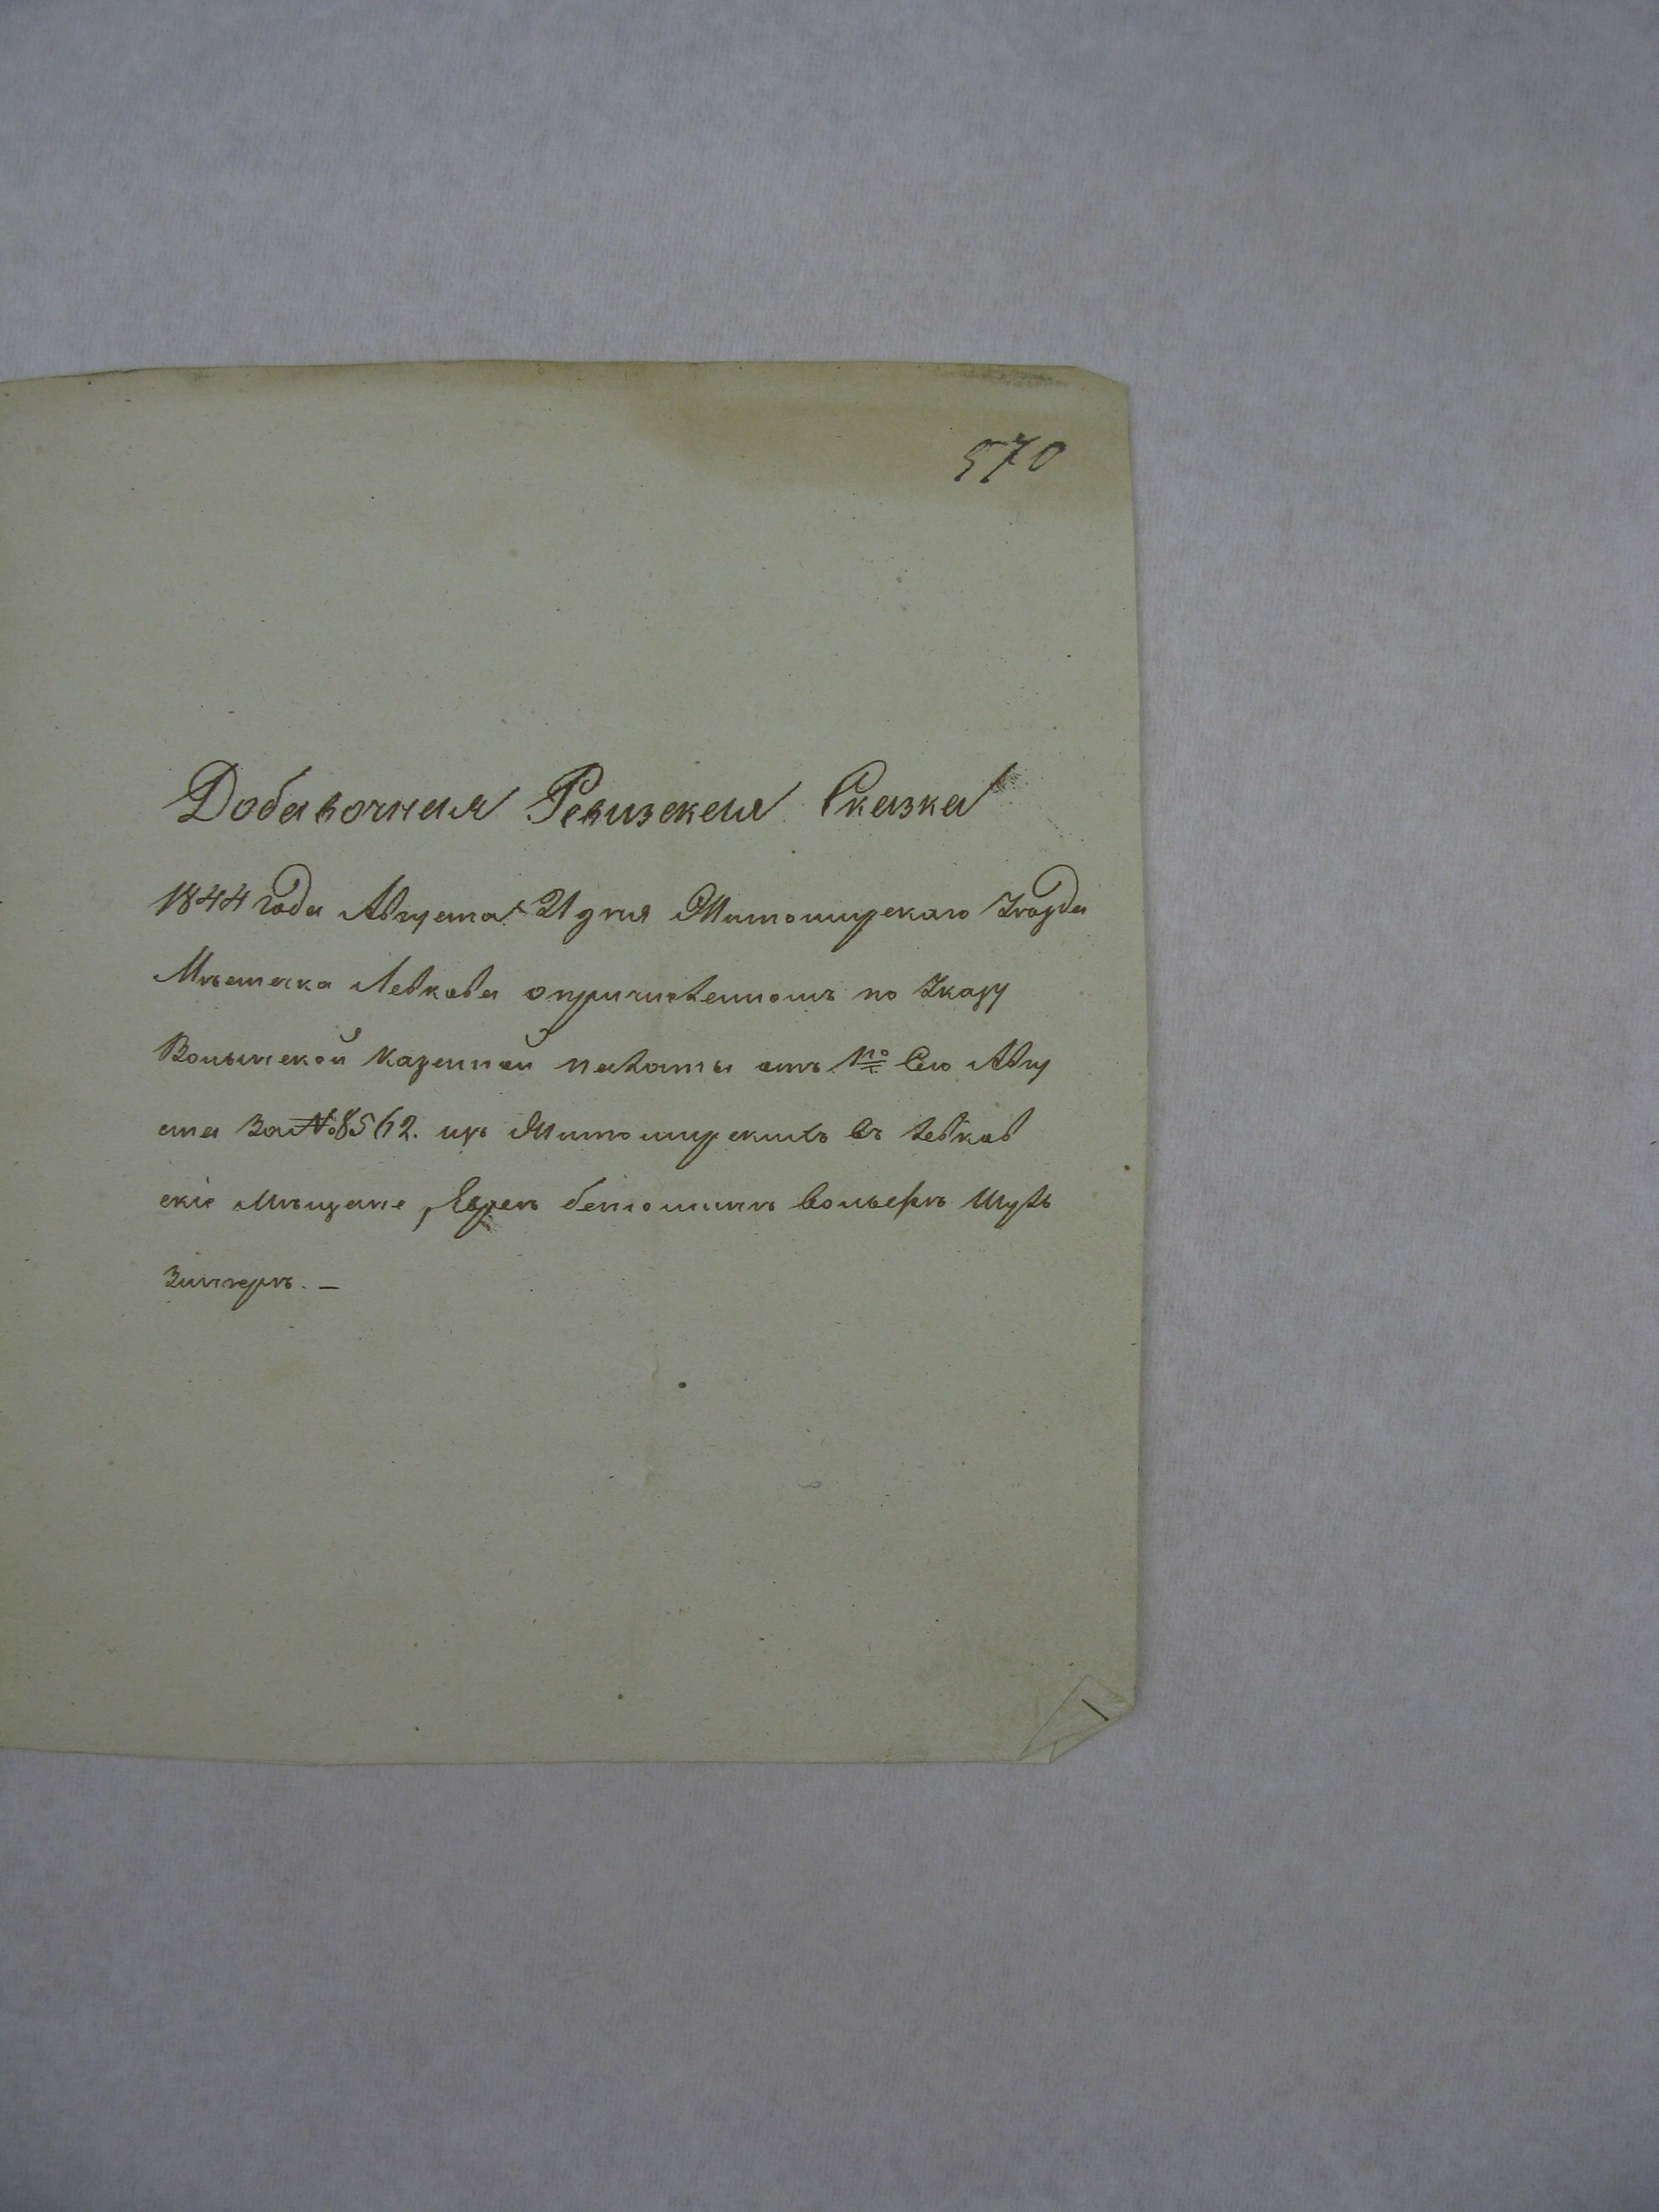 570
Добавочная Ревизская Сказка
1844 года Августа 21 дня Житомирскаго Уѣзда
Мѣстечка Левкова опричисленномъ по Указу
Волынской Казенной палаты отъ 1го Сего Авгу
ста За № 8562. изъ Житомирскихъ въ Левков
скіе Мѣщане, Еврей